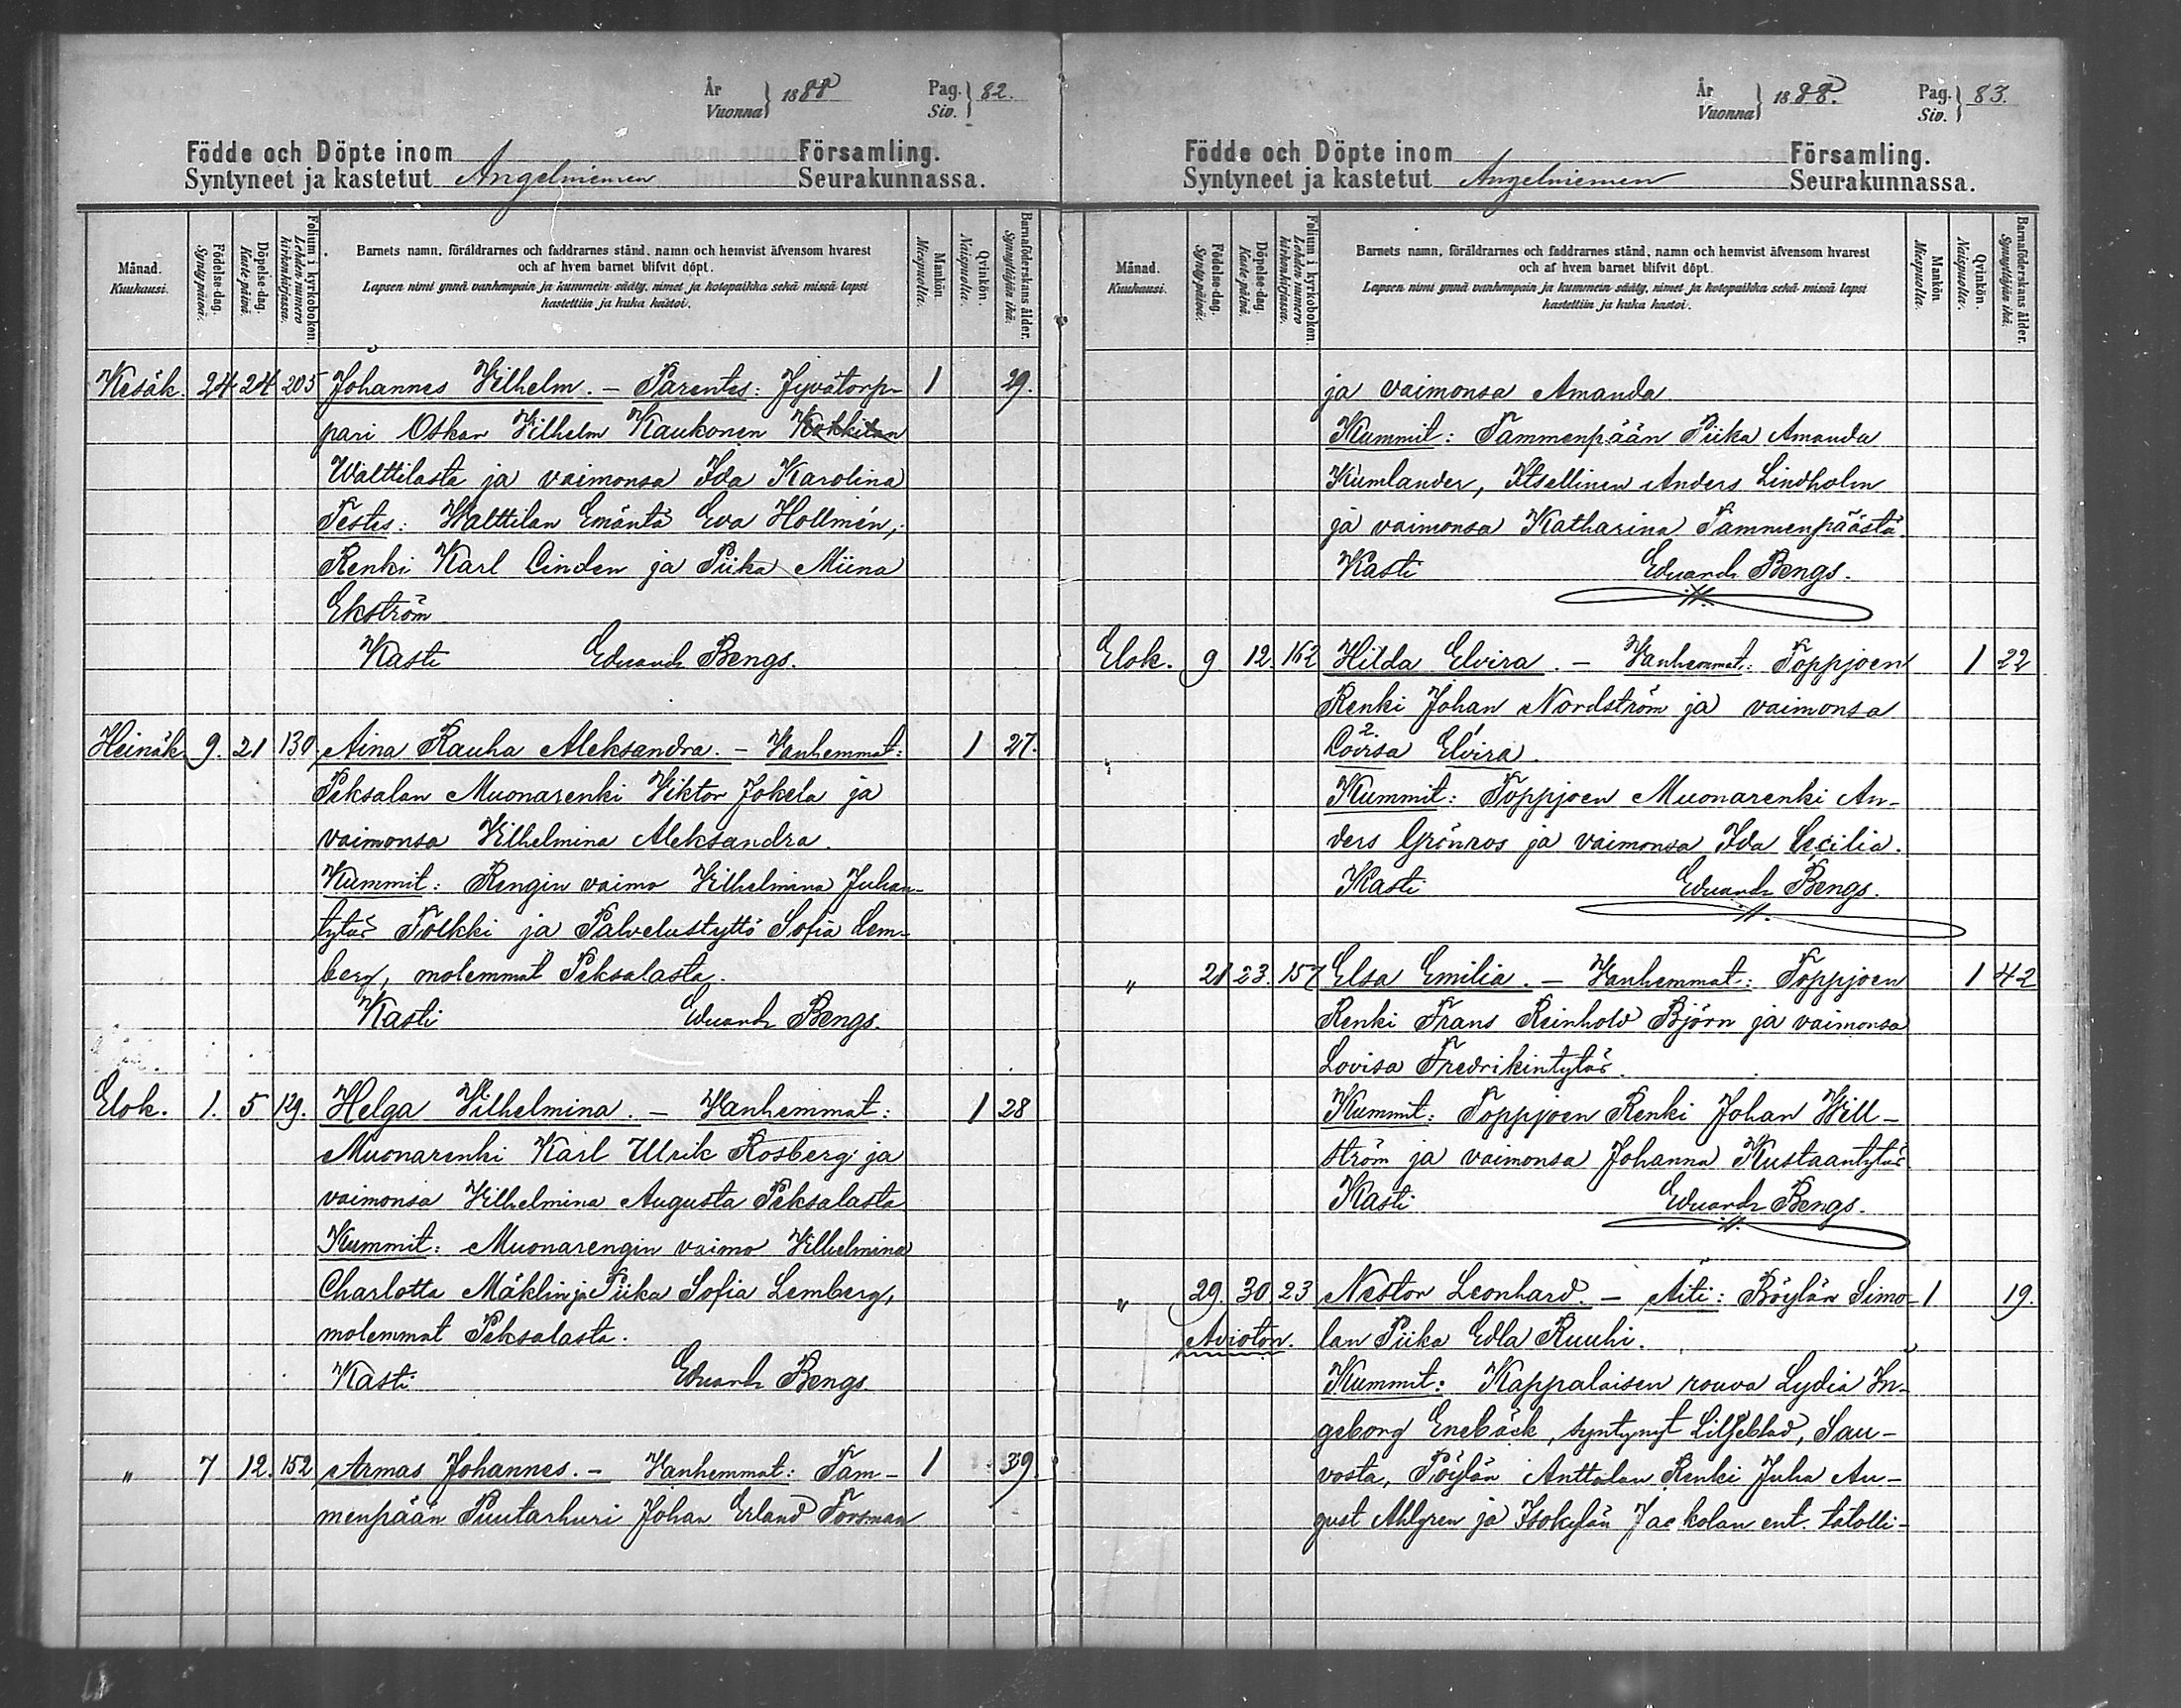 År
Vuonna } 1888
Pag.
Siv. } 82.
Födde och Döpte inom Församling.
Syntyneet ja kastetut Angelniemen Seurakunnassa.
Månad.
Kuukausi.
Födelse-dag.
Syntypäivä.
Döpelse-dag.
Kaste päivä.
Folium i kyrkobokon.
Lehden numero kirkonkirjassa.
Barnets namn, föräldrarnes och faddrarnes stånd, namn och hemvist äfvensom hvarest
och af hvem barnet blifvit döpt.
Lapsen nimi ynnä vanhempain ja kummein sääty, nimet ja kotopaikka sekä missä lapsi
kastettiin ja kuka kastoi.
Mankön.
Miespuolta.
Qvinkön.
Naispuolta.
Barnaföderskans ålder.
Synnyttäjän ikä.
Kesäk. 24 24 205 Johannes Vilhelm. – Parentes: Jyvätorp- 1 29.
pari Oskar Vilhelm Kaukonen Kokkilan
Walttilasta ja vaimonsa Ida Karolina
Testes: Walttilan Emäntä Eva Hollmén,
Renki Karl Linden ja Piika Miina
Ekström
Kasti Eduard Bengs.
Heinäk. 9. 21 130 Aina Rauha Aleksandra. – Vanhemmat: 1 27.
Peksalan Muonarenki Viktor Jokela ja
vaimonsa Vilhelmina Aleksandra.
Kummit: Rengin vaimo Vilhelmina Juhan-
tytär Tolkki ja Palvelustyttö Sofia Lem-
berg, molemmat Peksalasta.
Kasti Eduard Bengs.
Elok. 1. 5 129. Helga Vilhelmina. – Vanhemmat: 1 28
Muonarenki Karl Ulrik Rosberg ja
vaimonsa Vilhelmina Augusta Peksalasta
Kummit: Muonarengin vaimo Vilhelmina
Charlotta Mäklin ja Piika Sofia Lemberg,
molemmat Peksalasta.
Kasti Eduard Bengs.
" 7 12. 152 Armas Johannes. – Vanhemmat: Tam- 1 39
menpään Puutarhuri Johan Erland Forsman
År
Vuonna } 1888.
Pag.
Siv. } 83.
Födde och Döpte inom Församling.
Syntyneet ja kastetut Angelniemen Seurakunnassa.
Månad.
Kuukausi.
Födelse-dag.
Syntypäivä.
Döpelse-dag.
Kaste päivä.
Folium i kyrkobokon.
Lehden numero kirkonkirjassa.
Barnets namn, föräldrarnes och faddrarnes stånd, namn och hemvist äfvensom hvarest
och af hvem barnet blifvit döpt.
Lapsen nimi ynnä vanhempain ja kummein sääty, nimet ja kotopaikka sekä missä lapsi
kastettiin ja kuka kastoi.
Mankön
Miespuolta.
Qvinkön.
Naispuolta.
Barnaföderskans ålder.
Synnyttäjän ikä.
ja vaimonsa Amanda
Kummit: Tammenpään Piika Amanda
Kumlander, Itsellinen Anders Lindholm
ja vaimonsa Katharina Tammenpäästä.
Kasti Eduard Bengs.
Elok. 9 12. 162 Hilda Elvira. – Vanhemmat: Toppjoen 1 22
Renki Johan Nordström ja vaimonsa
2. 1
Lovisa Elvira.
Kummit: Toppjoen Muonarenki An-
ders Grönros ja vaimonsa Ida Cecilia.
Kasti Eduard Bengs.
" 21 23. 157 Elsa Emilia. – Vanhemmat: Toppjoen 1 42
Renki Frans Reinhold Björn ja vaimonsa
Lovisa Fredrikintytär.
Kummit: Toppjoen Renki Johan Will-
ström ja vaimonsa Johanna Kustaantytär
Kasti Eduard Bengs.
" 29. 30 23 Nestor Leonhard. – Äiti: Pöylän Simo- 1 19.
Avioton. lan Piika Edla Ruuhi.
Kummit: Kappalaisen rouva Lydia In-
geborg Enebäck, syntynyt Liljeblad, Sau-
vosta, Pöylän Anttalan Renki Juha Au-
gust Ahlgren ja Isokylän Jackolan ent. talolli-